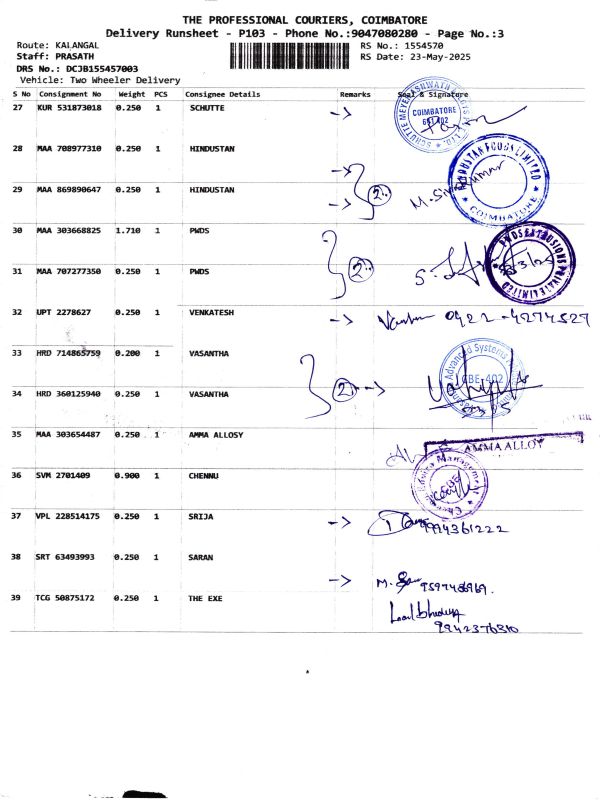 THE PROFESSIONAL COURIERS, COIMBATORE
Delivery Runsheet - P103 - Phone No.:9047080280 - Page No.:3
Route: KALANGAL RS No.: 1554570
Staff: PRASATH RS Date: 23-May-2025
DRS No.: DCJB155457003
Vehicle: Two Wheeler Delivery
S No Consignment No Weight PCS Consignee Details Remarks Seal & Signature
27 KUR 531873018 0.250 1 SCHUTTE ->
COIMBATORE
28 MAA 708977310 0.250 1 HINDUSTAN ->
29 MAA 869890647 0.250 1 HINDUSTAN -> 2
HINDUSTAN FOODS LIMITED
COIMBATORE
30 MAA 303668825 1.710 1 PWDS
31 MAA 707277350 0.250 1 PWDS 2
PRIVATE LIMITED
32 UPT 2278627 0.250 1 VENKATESH -> 0422-4274527
33 HRD 714865759 0.200 1 VASANTHA
Advanced Systems
CBE-402
34 HRD 360125940 0.250 1 VASANTHA 2 ->
35 MAA 303654487 0.250 1 AMMA ALLOSY
AMMA ALLOY
36 SVM 2701409 0.900 1 CHENNU
37 VPL 228514175 0.250 1 SRIJA -> 9994361222
38 SRT 63493993 0.250 1 SARAN
-> M.
39 TCG 50875172 0.250 1 THE EXE
9942376310